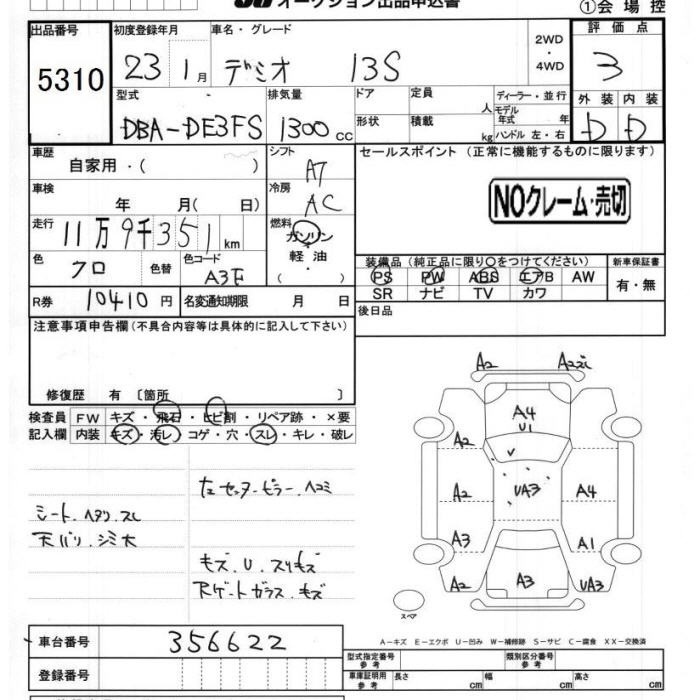 オークション出品申込書
①会場控
出品番号 初度登録年月 車名・グレード 2WD・4WD 評価点
5310 23 1月 デミオ 13S 3
型式 排気量 ドア 定員 人 ディーラー・並行 外装 内装
DBA-DE3FS 1300cc 形状 積載 kg モデル年式 年 ハンドル 左・右 D D
車歴 自家用・( ) シフト AT セールスポイント (正常に機能するものに限ります)
車検 年 月( 日) 冷房 AC NOクレーム・売切
走行 11万9千351km 燃料 ガソリン・軽油・( )
色 クロ 色替 色コード A3F 装備品 (純正品に限り○をつけてください) 新車保証書
PS PW ABS エアB AW 有・無
SR ナビ TV カワ
R券 10410円 名変通知期限 月 日 後日品
注意事項申告欄(不具合内容等は具体的に記入して下さい)
修復歴 有 〔箇所 〕
検査員 FW キズ・飛石・ヒビ割・リペア跡・×要
記入欄 内装 キズ・汚レ・コゲ・穴・スレ・キレ・破レ
左センターピラーヘコミ
シートヘタリ.スレ
天バリ.シミ大
キズ.U.スリキズ
Rゲートガラスキズ
A2 A2
A4
U1
A2
A2 UA3 A4
A3 A1
A2 A3 UA3
スペア
A-キズ E-エクボ U-凹み W-補修跡 S-サビ C-腐食 XX-交換済
車台番号 356622
型式指定番号 参考 類別区分番号 参考
登録番号
車庫証明用 参考 長さ cm 幅 cm 高さ cm